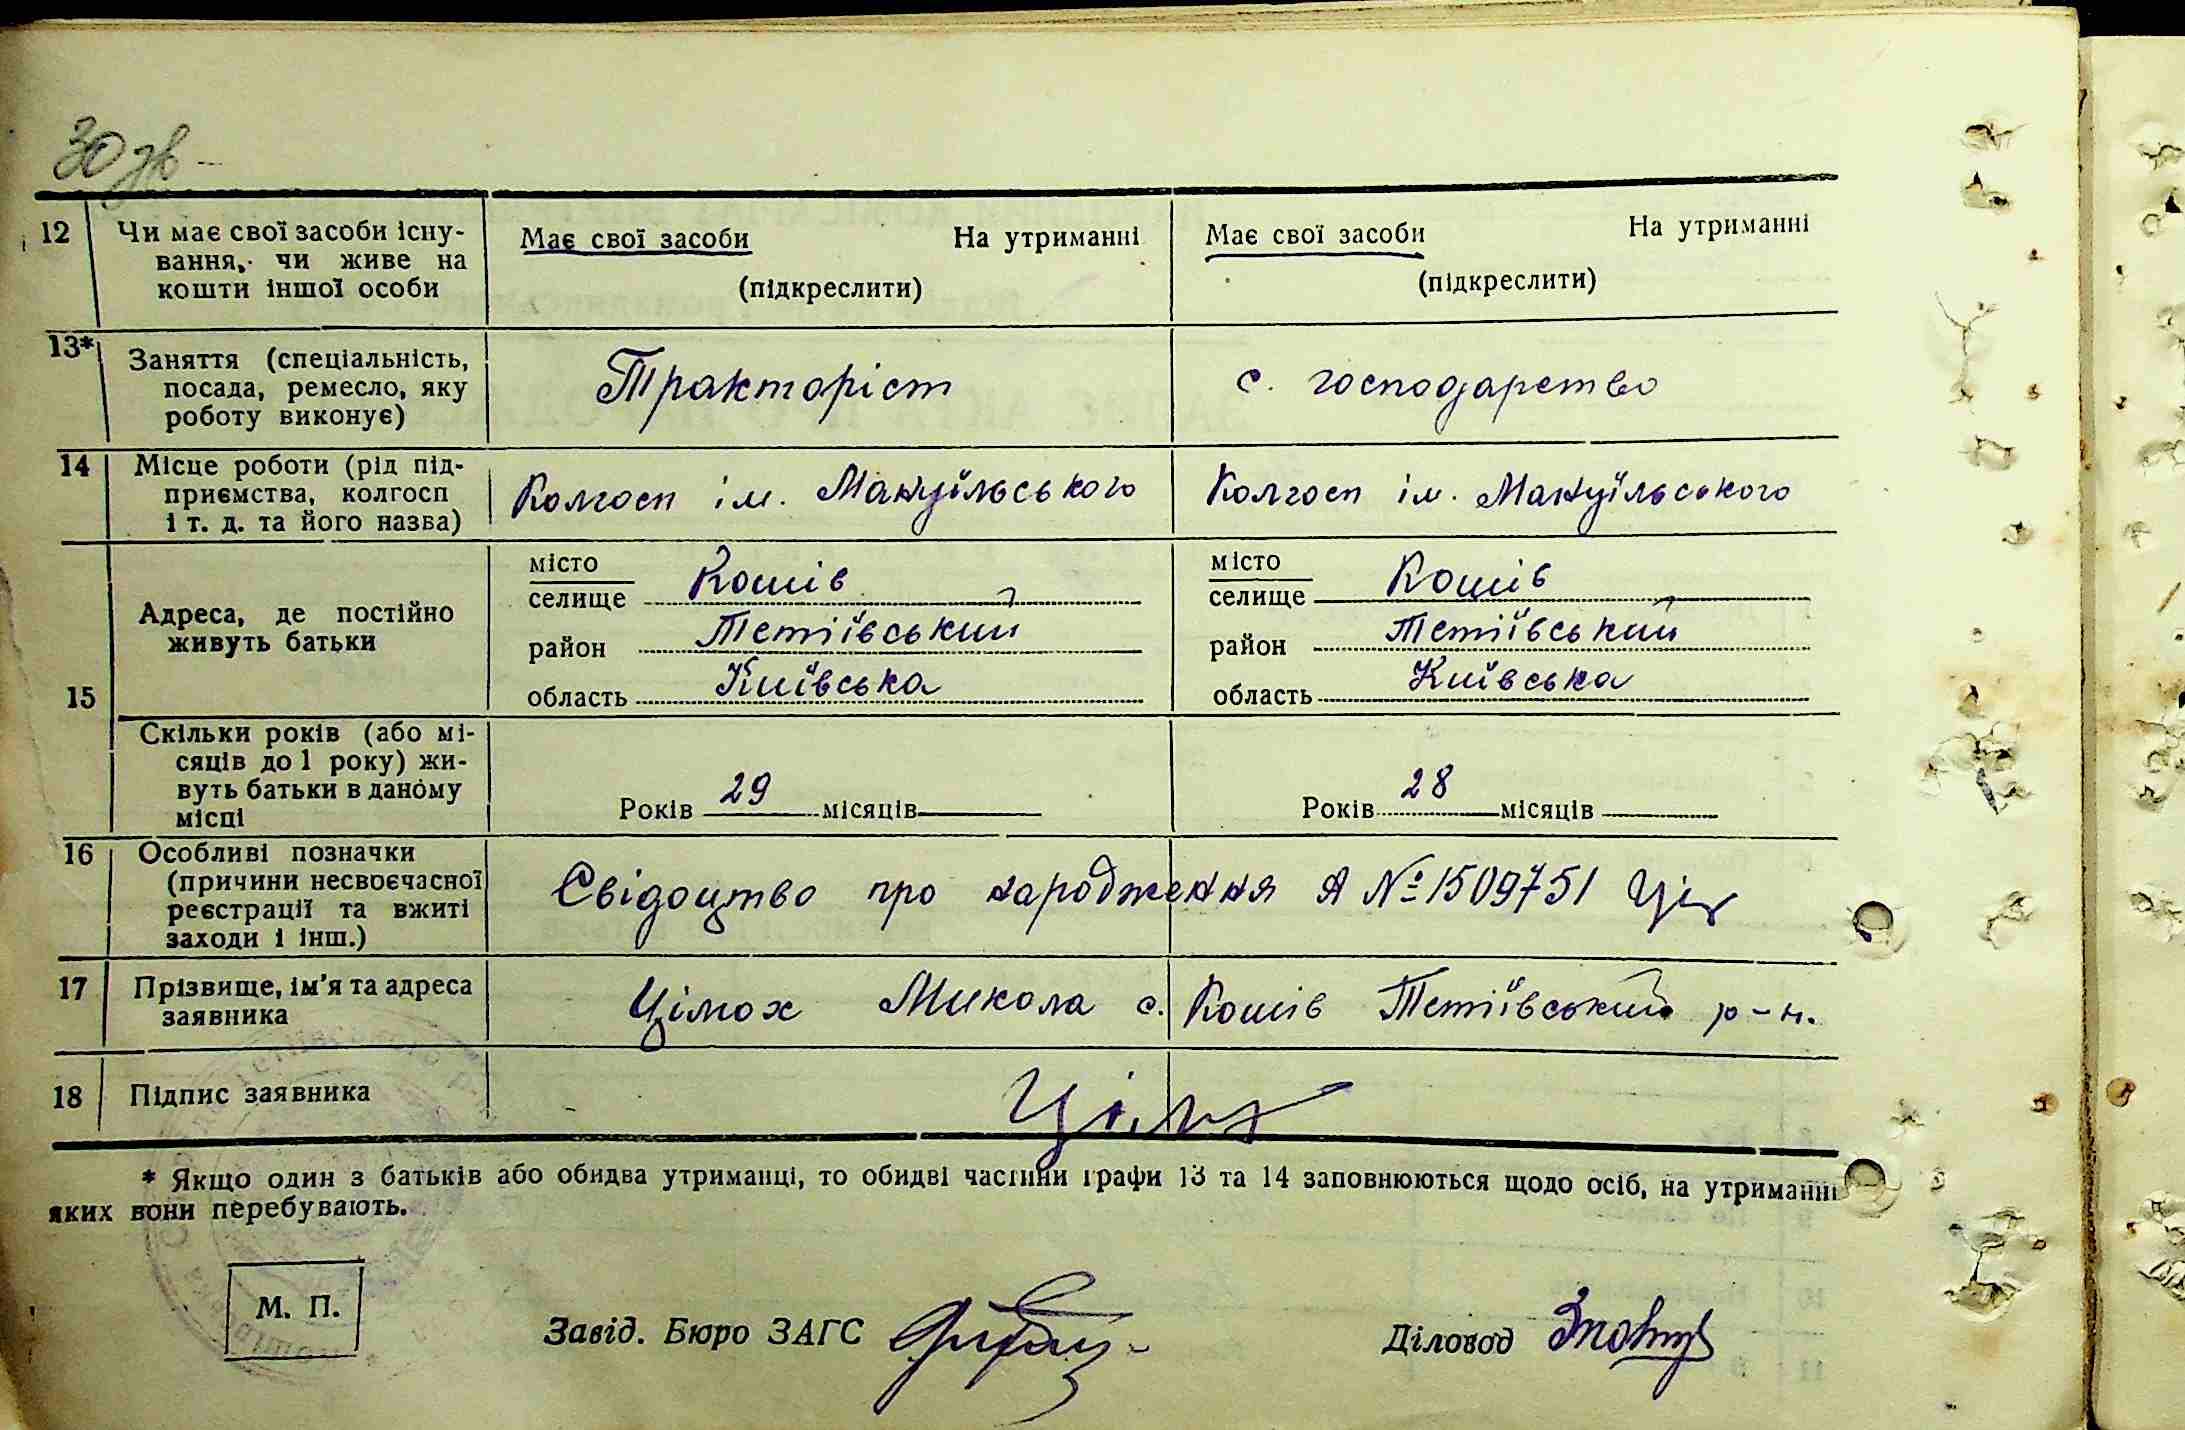 30 зв
12 Чи має свої засоби існу- Має свої засоби На утриманні Має свої засоби На утриманні
вання, чи живе на
кошти іншої особи (підкреслити) (підкреслити)
13* Заняття (спеціальність,
посада, ремесло, яку Тракторіст с. господарство
роботу виконує)
14 Місце роботи (рід під-
приємства, колгосп Колгосп ім. Мануїльського Колгосп ім. Мануїльського
і т. д. та його назва)
15 Адреса, де постійно
живуть батьки
місто
селище Кошів
район Тетіївський
область Київська
місто
селище Кошів
район Тетіївський
область Київська
Скільки років (або мі-
сяців до 1 року) жи-
вуть батьки в даному
місці
Років 29 місяців Років 28 місяців
16 Особливі позначки
(причини несвоєчасної Свідоцтво про народження А № 1509751
реєстрації та вжиті
заходи і інш.)
17 Прізвище, ім'я та адреса Цімох Микола с. Кошів Тетіївський р-н.
заявника
18 Підпис заявника
* Якщо один з батьків або обидва утриманці, то обидві частини графи 13 та 14 заповнюються щодо осіб, на утриманні
яких вони перебувають.
М. П.
Завід. Бюро ЗАГС Діловод